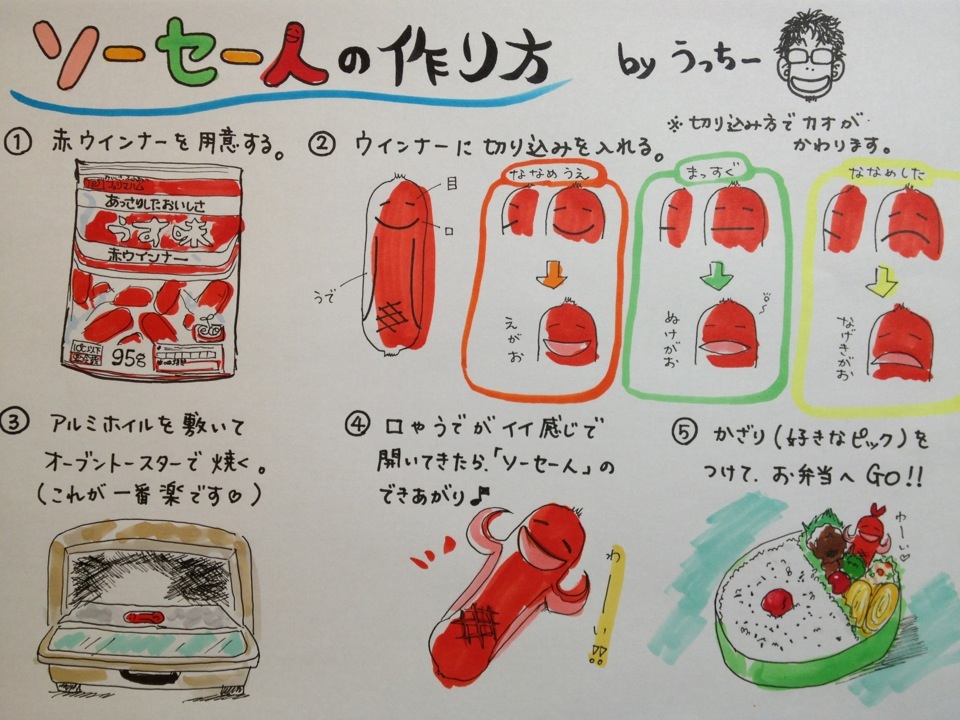 ソーセー人の作り方
by うっちー
① 赤ウインナーを用意する。
あっさりしたおいしさ
うす味
赤ウインナー
95g
② ウインナーに切り込みを入れる。
※切り込み方でカオが
かわります。
目
口
うで
ななめうえ
えがお
まっすぐ
ぬけがお
ななめした
なげきがお
③ アルミホイルを敷いて
オーブントースターで焼く。
(これが一番楽です♡)
④ 口やうでがイイ感じで
開いてきたら、「ソーセー人」の
できあがり♪
わーい!!
⑤ かざり(好きなピック)を
つけて、お弁当へGO!!
わーい♡